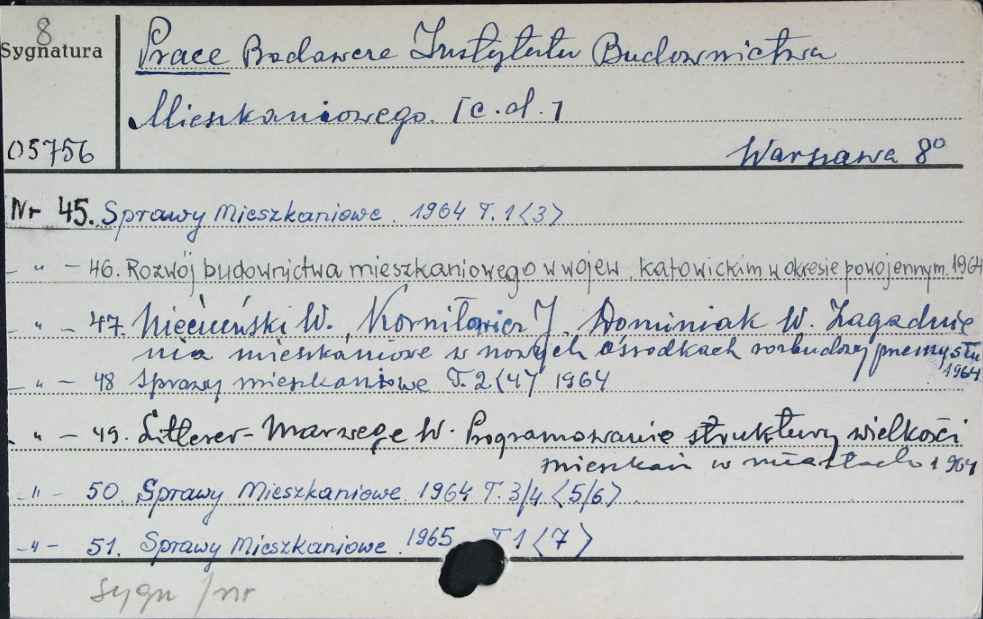 8
Sygnatura
Prace Badawcze Instytutu Budownictwa
Mieszkaniowego. [c.d.]
05756
Warszawa 8°
Nr 45. Sprawy Mieszkaniowe. 1964 T.1 <3>
- " - 46. Rozwój budownictwa mieszkaniowego w wojew. katowickim w okresie powojennym. 1964
- " - 47. Nieciuński W., Korniłowicz J., Dominiak W. Zagadnie
nia mieszkaniowe w nowych ośrodkach rozbudowy przemysłu
1964
- " - 48 Sprawy mieszkaniowe T. 2 (4) 1964
- " - 49. Litterer-Marwege W. Programowanie struktury wielkości
mieszkań w miastach 1964
- " - 50. Sprawy Mieszkaniowe 1964 T. 3/4 <5/6>
- " - 51. Sprawy Mieszkaniowe. 1965 T 1 <7>
sygn /nr